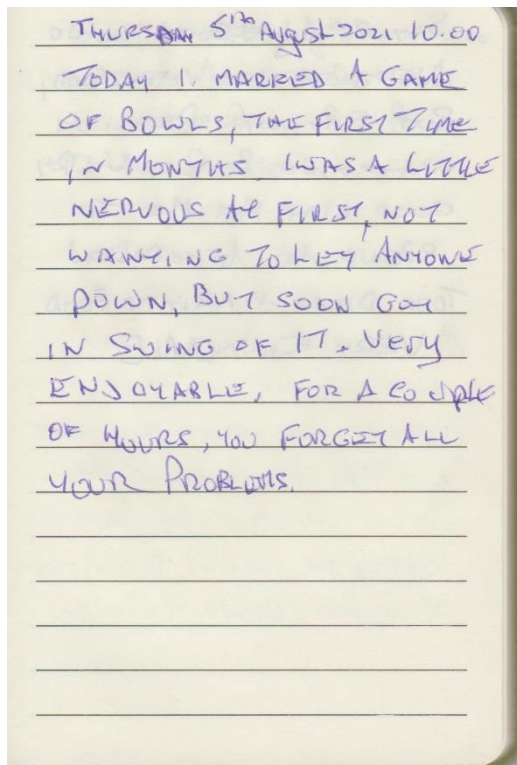 THURSDAY 5th August 2021 10.00
TODAY I MARKED A GAME
OF BOWLS, THE FIRST TIME
IN MONTHS. I WAS A LITTLE
NERVOUS AT FIRST, NOT
WANTING TO LET ANYONE
DOWN, BUT SOON GOT
IN SWING OF IT. VERY
ENJOYABLE, FOR A COUPLE
OF HOURS, YOU FORGET ALL
YOUR PROBLEMS.